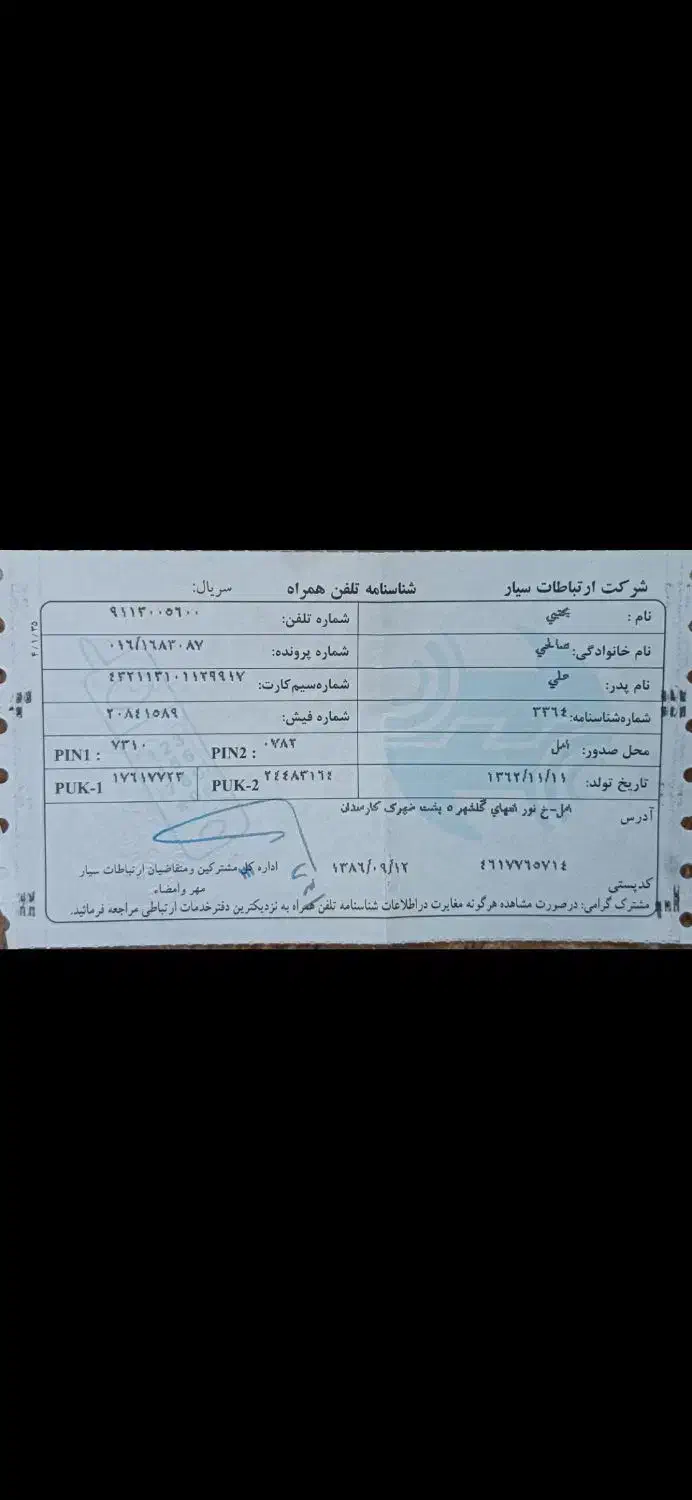 شرکت ارتباطات سیار شناسنامه تلفن همراه سریال:
نام : مجتبي شماره تلفن: ۹۱۱۳۰۰۵۶۰۰
نام خانوادگی: صالحي شماره پرونده: ۰۱۶/۱۶۸۳۰۸۷
نام پدر: علي شماره سیم کارت:
شماره شناسنامه: ۳۳۶٤ شماره فیش: ۲۰۸٤۱۵۸۹
محل صدور: امل PIN2 : ۰۷۸۲ PIN1 : ۷۳۱۰
تاریخ تولد: ۱۳۶۲/۱۱/۱۱ PUK-2 ۲٤٤۸۳۱۶٤ PUK-1 ۱۷۶۱۷۷۲۳
آدرس امل-خ نور انتهاي گلشهر ٥ پشت شهرک کارمندان
کدپستی ٤۶۱۷۷۶۵۷۱٤ ۱۳۸۶/۰۹/۱۲ اداره کل مشترکین و متقاضیان ارتباطات سیار
مهر وامضاء
مشترک گرامی: درصورت مشاهده هرگونه مغایرت دراطلاعات شناسنامه تلفن همراه به نزدیکترین دفتر خدمات ارتباطی مراجعه فرمائید.